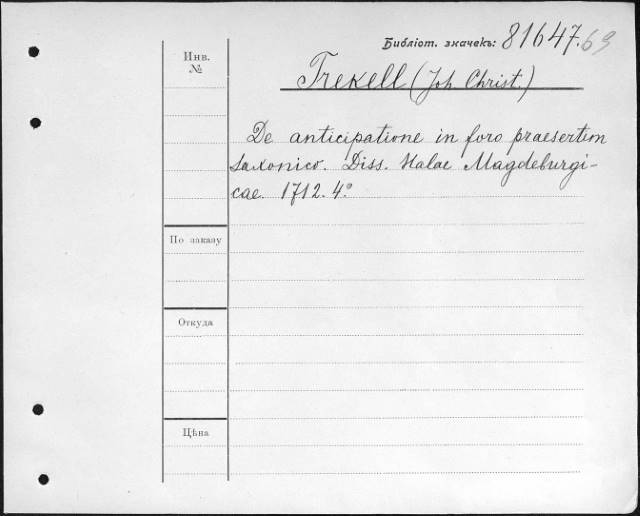 Библіот. значекъ: 81647.63
Инв.
№
Trekell (Joh Christ.)
De anticipatione in foro praesertim
saxonico. Diss. Halae Magdeburgi-
cae. 1712. 4°
По заказу
Откуда
Цѣна